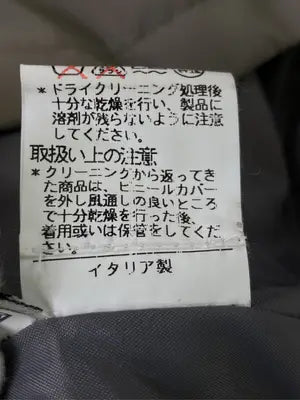 * ドライクリーニング処理後
十分な乾燥を行い、製品に
溶剤が残らないように注意
してください。
取扱い上の注意
* クリーニングから返ってき
た商品は、ビニールカバー
を外し風通しの良いところ
で十分乾燥を行った後、
着用或いは保管をしてくだ
さい。
イタリア製